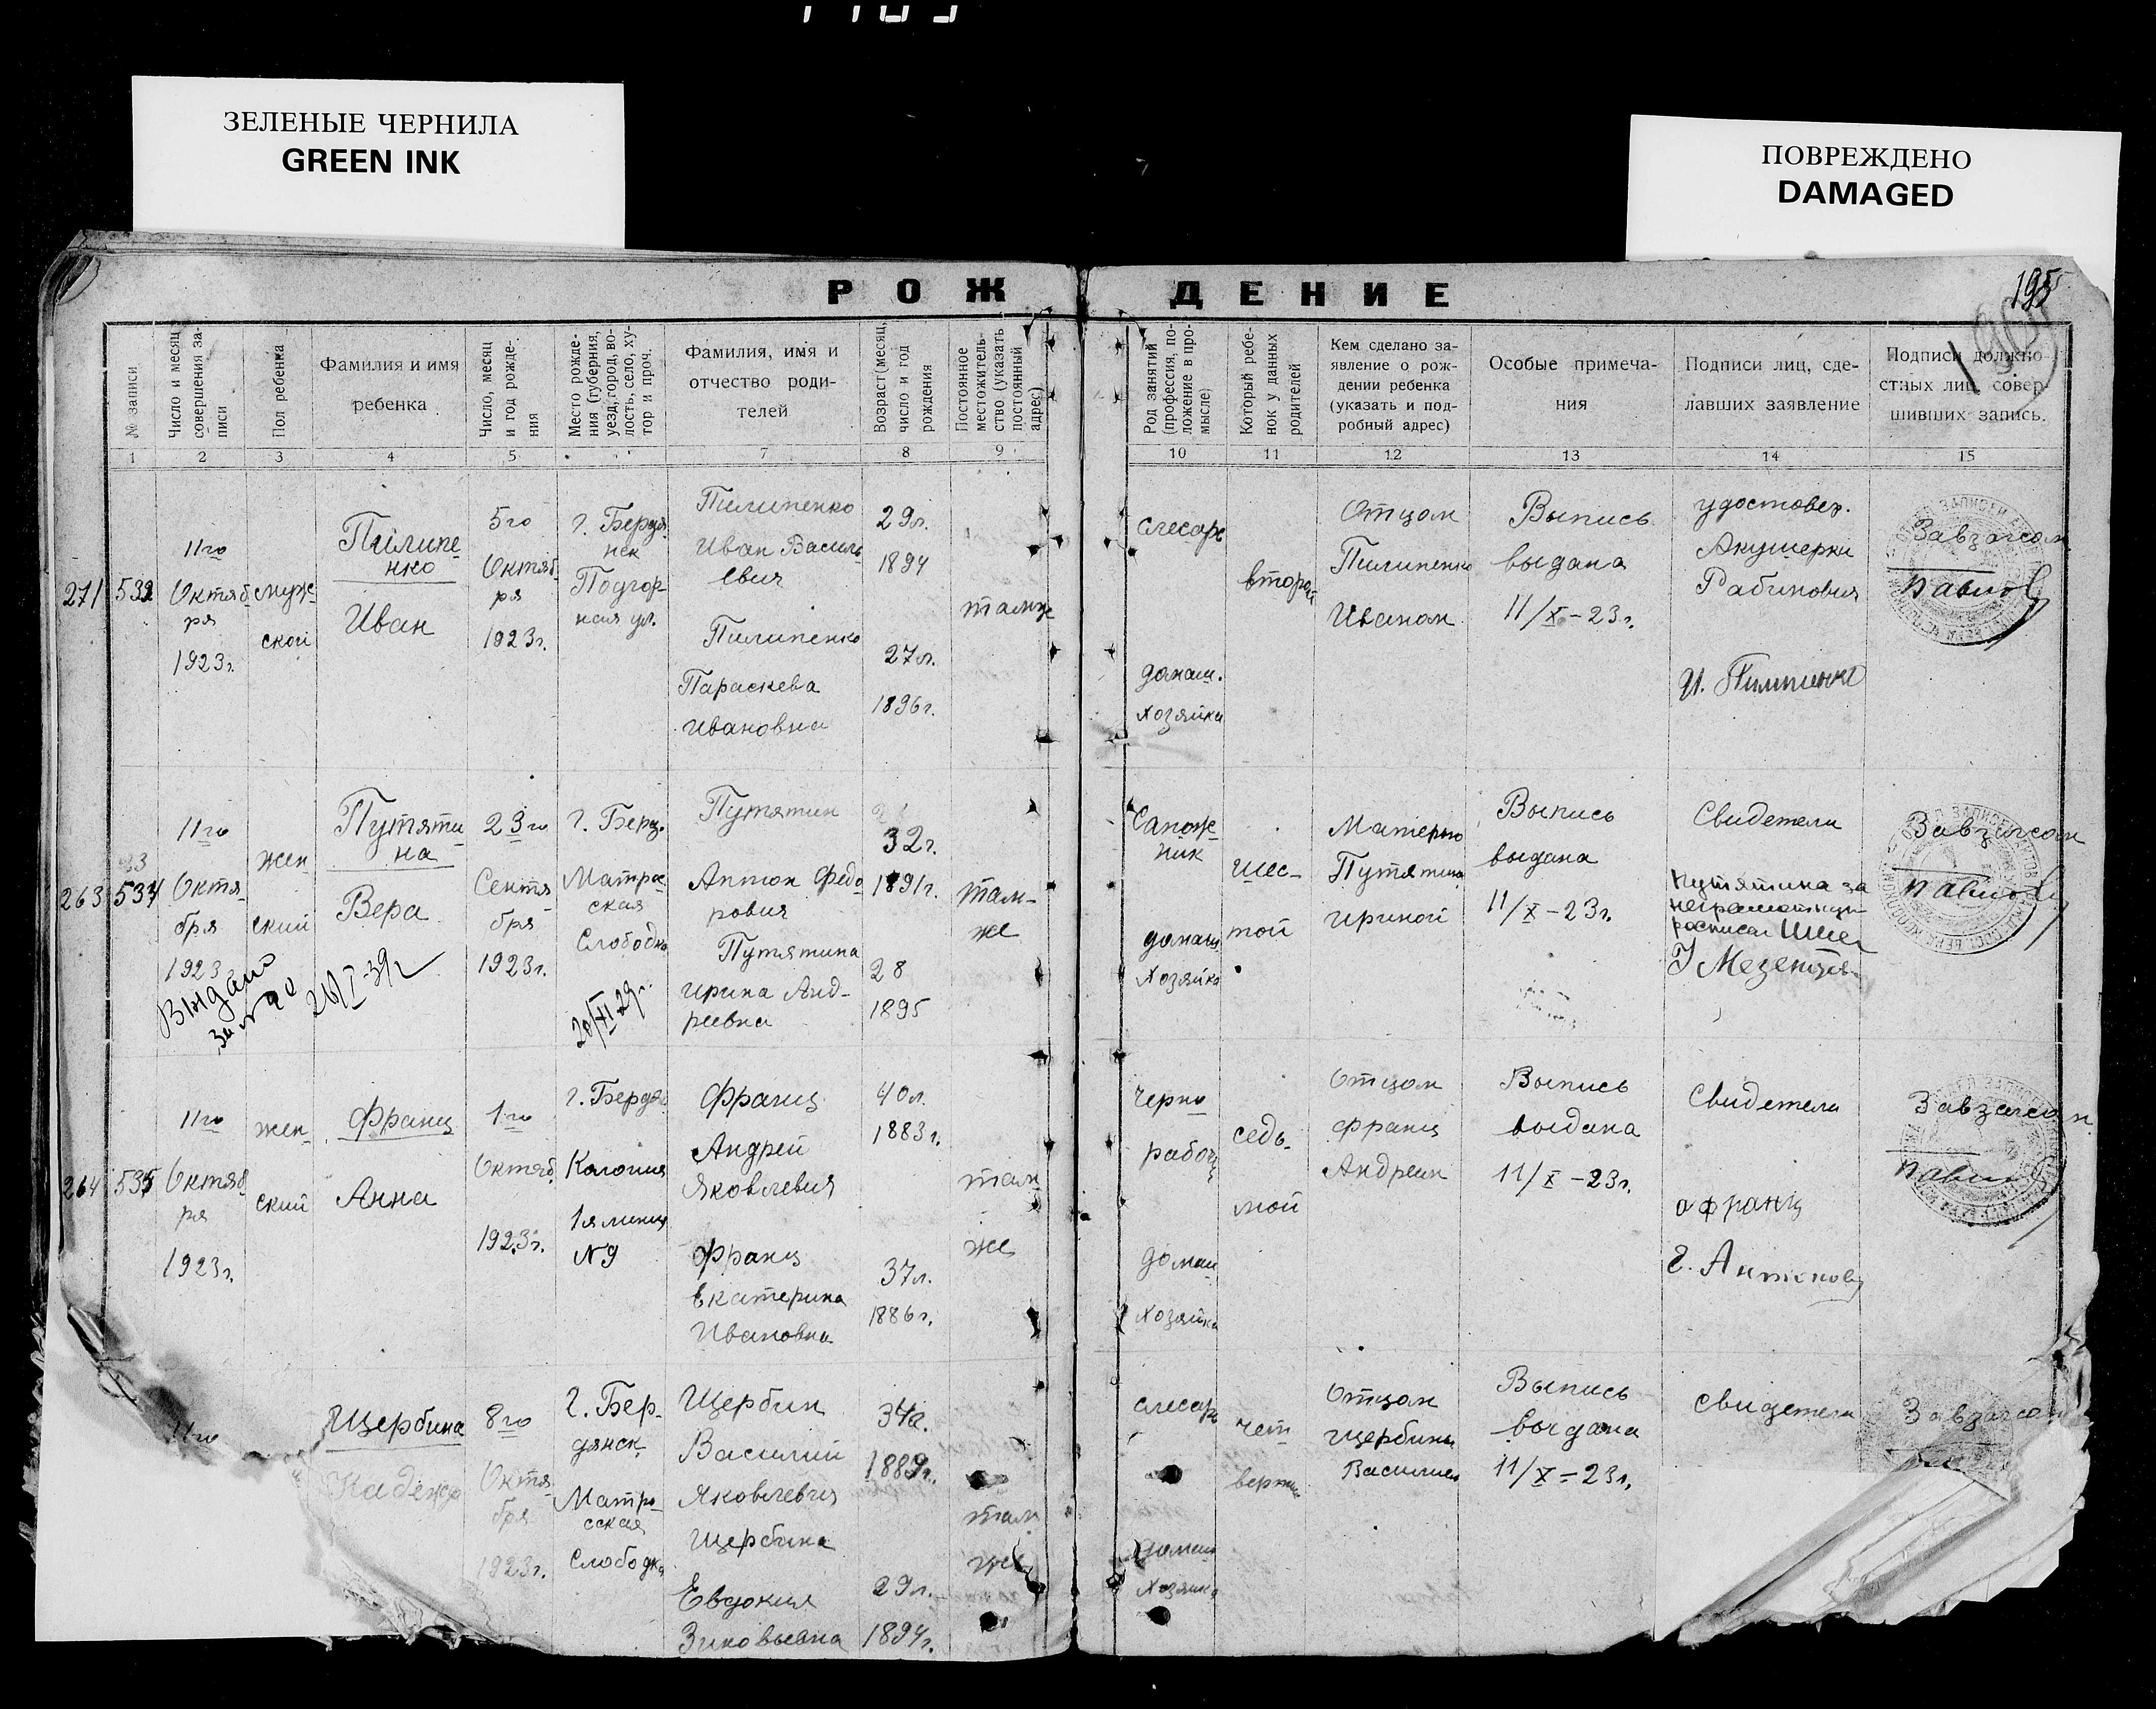 ЗЕЛЕНЫЕ ЧЕРНИЛА
GREEN INK
ПОВРЕЖДЕНО
DAMAGED
РОЖДЕНИЕ
195
№ записи
Число и месяц
совершения за-
писи
Пол ребенка
Фамилия и имя
ребенка
Число, месяц
и год рожде-
ния
Место рожде-
ния (губерния,
уезд, город, во-
лость, село, ху-
тор и проч.
Фамилия, имя и
отчество роди-
телей
Возраст (месяц,
число и год
рождения
Постоянное
местожитель-
ство (указать
постоянный
адрес)
Род занятий
(профессия, по-
ложение в про-
мысле)
Который ребе-
нок у данных
родителей
Кем сделано за-
явление о рож-
дении ребенка
(указать и под-
робный адрес)
Особые примеча-
ния
Подписи лиц, сде-
лавших заявление
Подписи должно-
стных лиц, совер-
шивших запись.
1
2
3
4
5
7
8
9
10
11
12
13
14
15
271
11го
Октяб
ря
1923г.
муж-
ской
Пилипе-
нко
Иван
5го
Октяб
ря
1923г.
г. Бердя
нск
Подгор-
ная ул.
Пилипенко
Иван Василь
евич
Пилипенко
Параскева
Ивановна
29л.
1894
27л.
1896г.
также
слесарь
домаш.
хозяйка
второй
Отцом
Пилипенко
Иваном
Выпись
выдана
11/X-23г.
удостовер.
Акушерки
Рабинович
И. Пилипенко
Завзагсом
Павлов
263
534
11го
Октя-
бря
1923
жен
ский
Путяти
на
Вера
23го
Сентя
бря
1923г.
г. Берд.
Матрос-
ская
Слободка
Путятин
Антон Федо
рович
Путятина
Ирина Анд-
реевна
32г.
1891г.
28
1895
там-
же
Выдано
за №
20/XI 29г.
Сапож-
ник
домаш
хозяйка
шес-
той
Матерью
Путятина
Ириной
Выпись
выдана
11/X-23г.
Свидетели
Путятина за
неграмотную
расписал
Завзагсом
Павлов
264
535
11го
Октяб
ря
1923г.
жен-
ский
Франц
Анна
1го
Октяб.
1923г.
г. Бердян
Колония
1я линия
№9
Франц
Андрей
Яковлевич
Франц
Екатерина
Ивановна
40л.
1883г.
37л.
1886г.
там
же
черно
рабоч
домаш
хозяйка
седь-
мой
Отцом
Франц
Андреем
Выпись
выдана
11/X-23г.
Свидетели
а франц
Завзагсом
Павлов
11го
Щербина
Надежда
8го
Октя-
бря
1923г.
г. Бер-
дянск
Матро-
сская
Слободка
Щербин
Василий
Яковлевич
Щербина
Евдокия
Зиновьевна
34г.
1889г.
29л.
1894г.
там
же
слесарь
домаш
хозяйка
чет
верты
Отцом
Щербины
Василием
Выпись
выдана
11/X-23г.
свидетели
Завзагсом